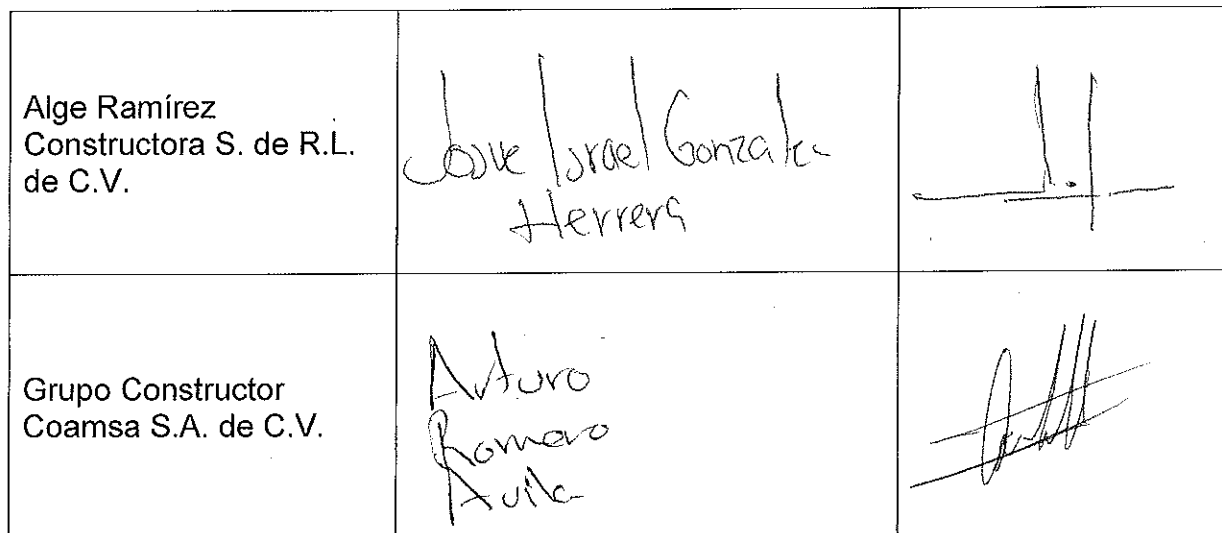 Alge Ramírez
Constructora S. de R.L.
de C.V.
Josue Israel Gonzalez
Herrera
Grupo Constructor
Coamsa S.A. de C.V.
Arturo
Romero
Avila